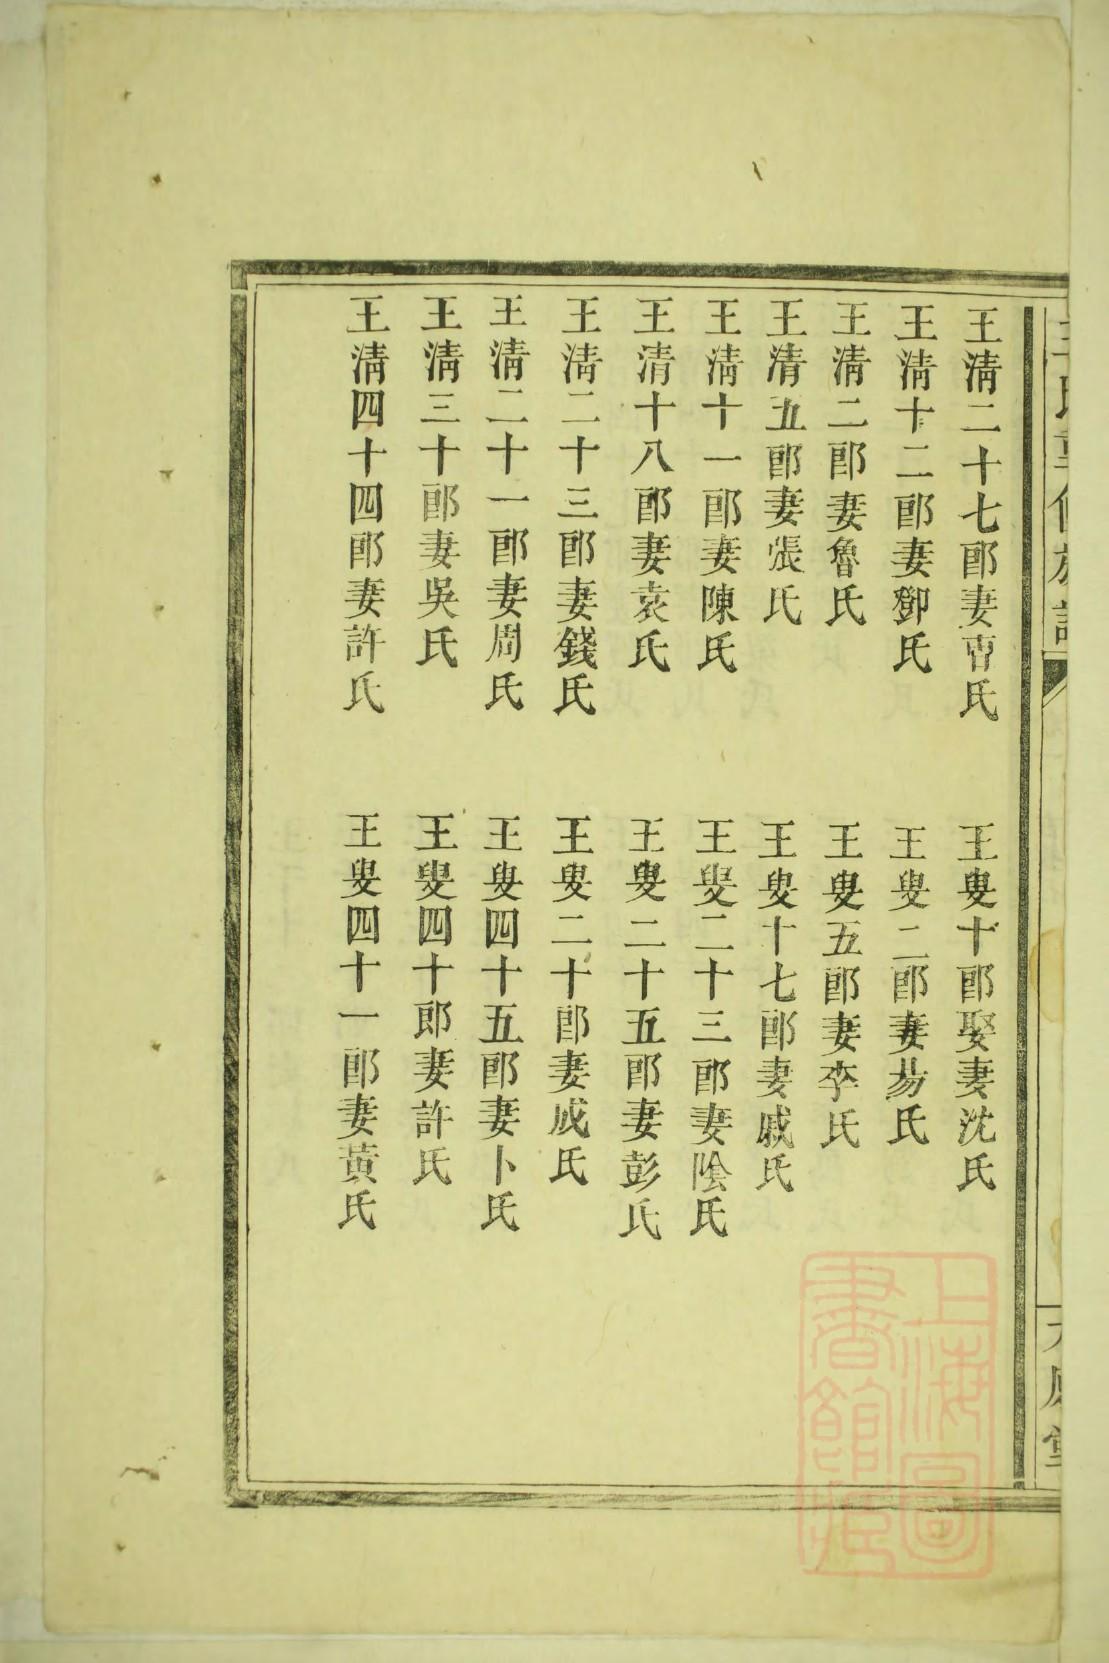 王清二十七郎妻曹氏
王清十二郎妻鄧氏
王清二郎妻魯氏
王清五郎妻張氏
王清十一郎妻陳氏
王清十八郎妻袁氏
王清二十三郎妻錢氏
王清二十一郎妻周氏
王清三十郎妻吳氏
王清四十四郎妻許氏
王叟十郎娶妻沈氏
王叟二郎妻昜氏
王叟五郎妻李氏
王叟十七郎妻戚氏
王叟二十三郎妻陰氏
王叟二十五郎妻彭氏
王叟二十郎妻成氏
王叟四十五郎妻卜氏
王叟四十郎妻許氏
王叟四十一郎妻黃氏
上海圖
書館藏